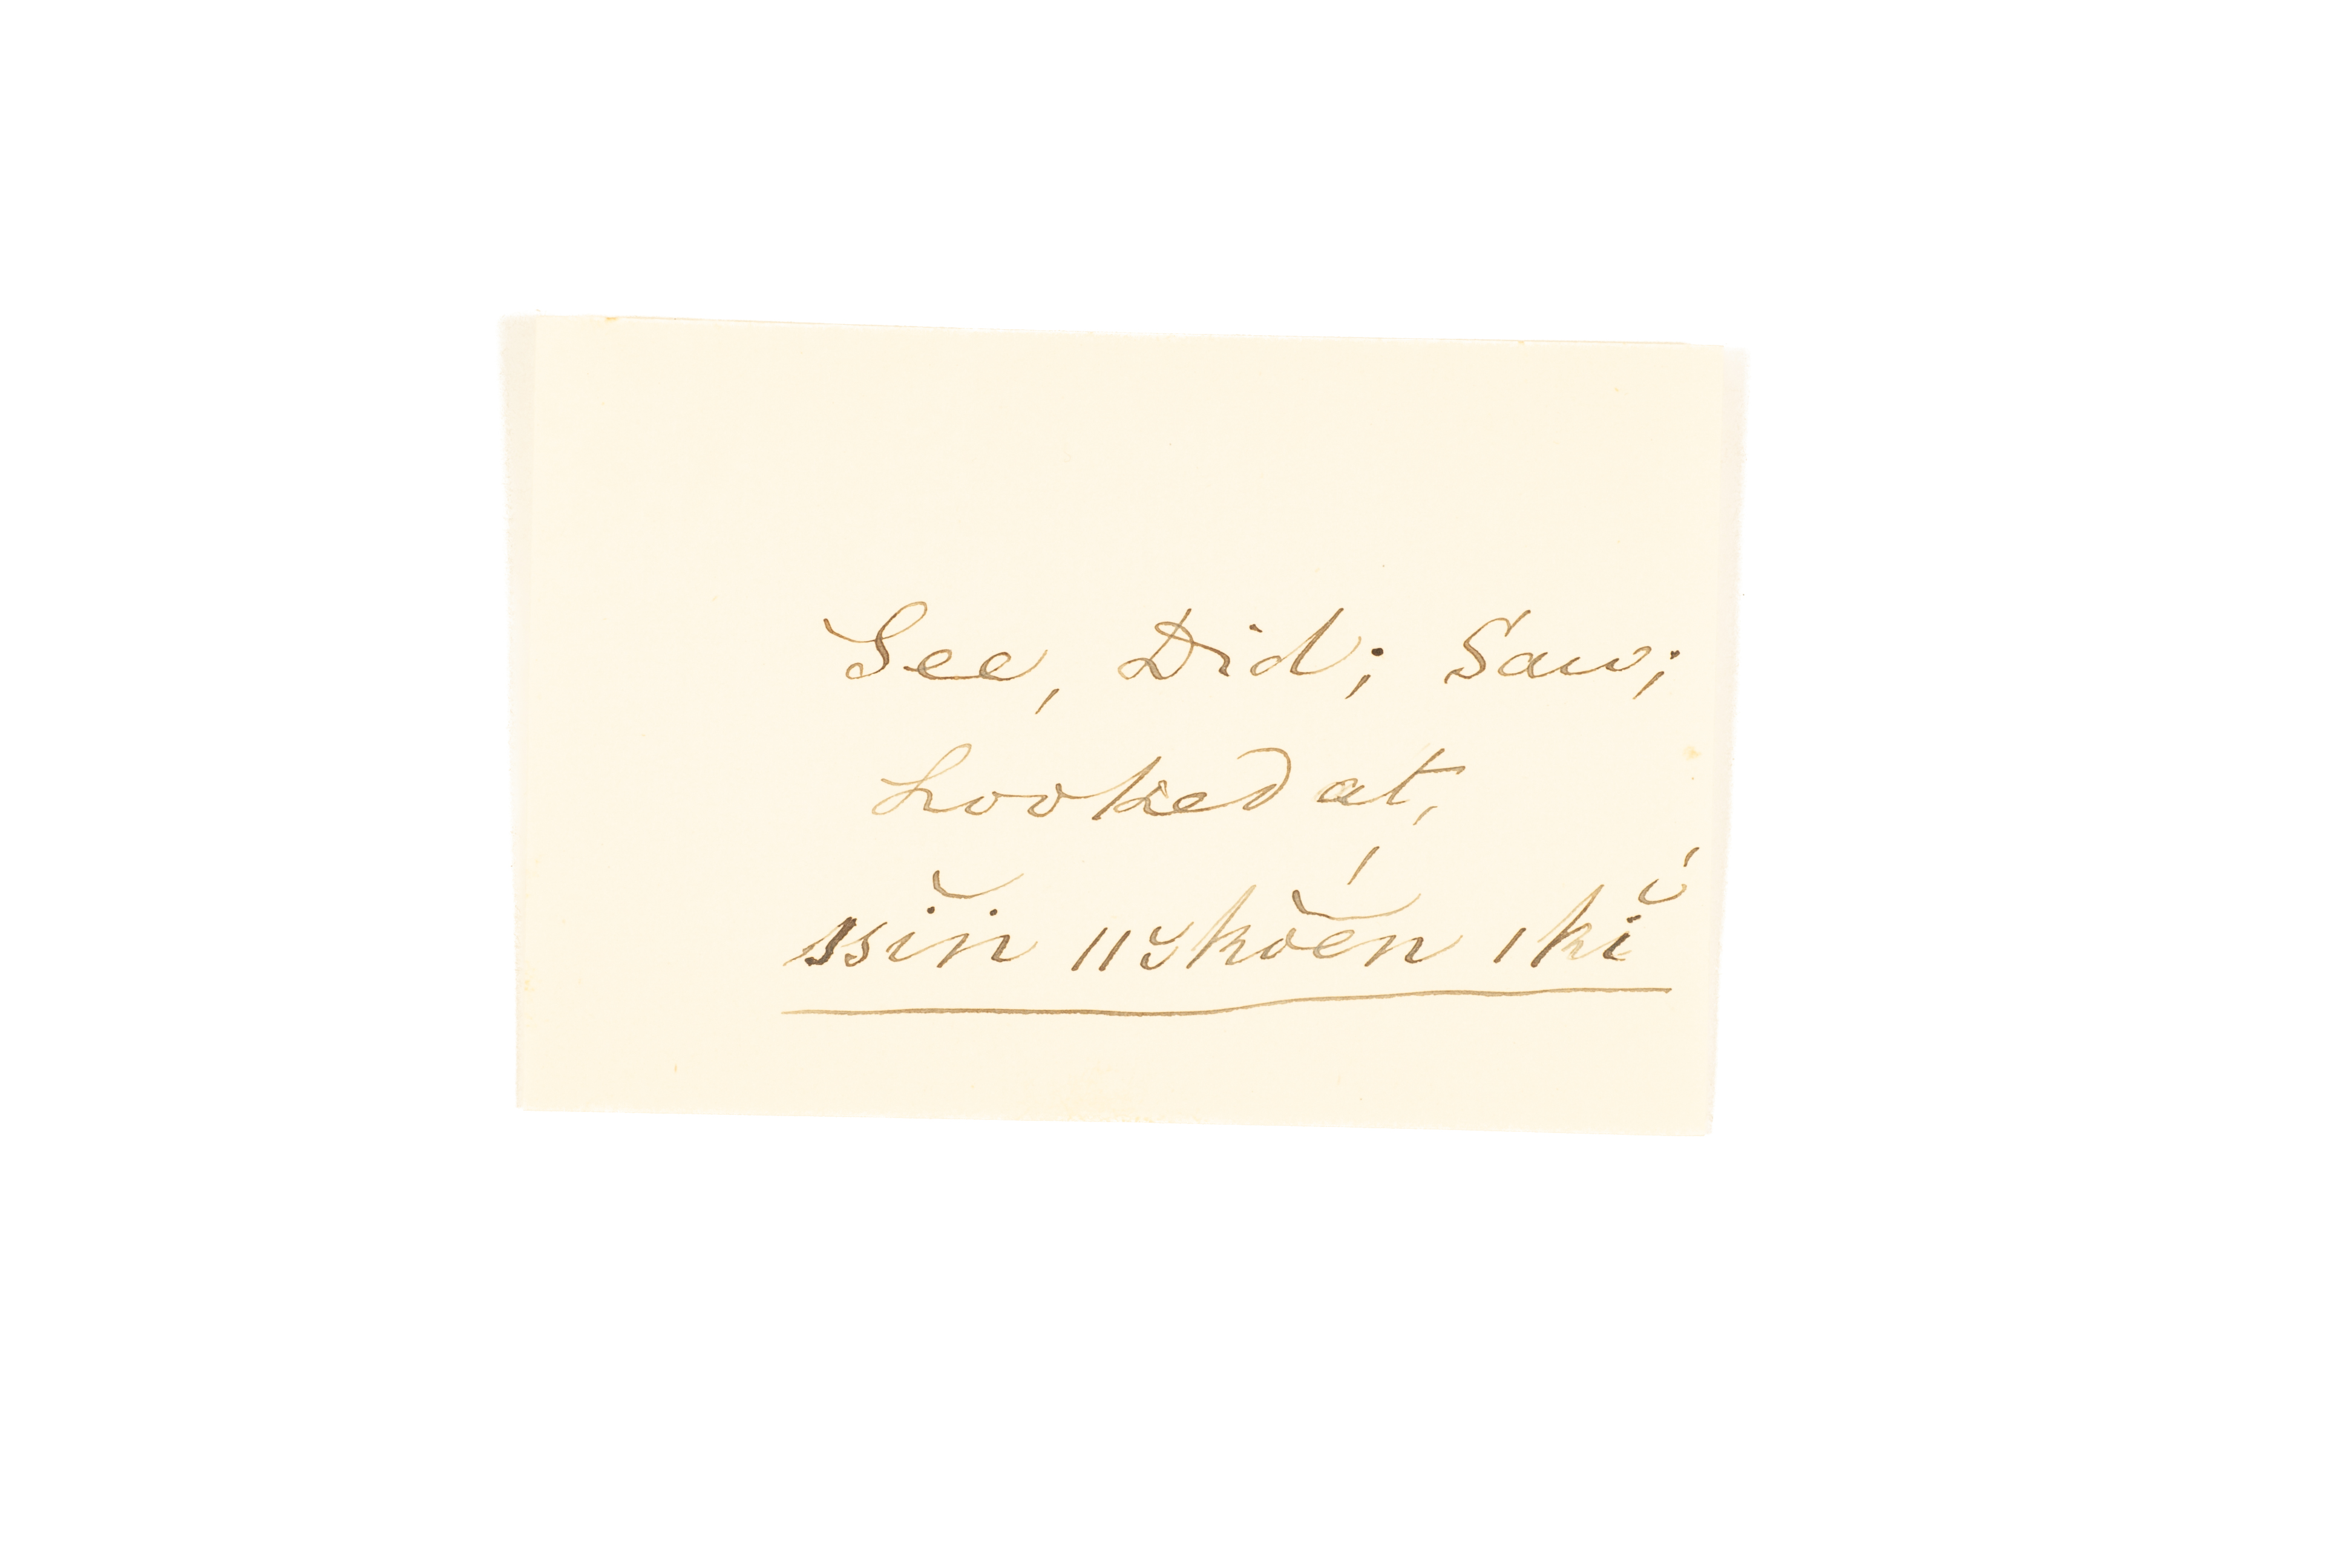 See, Did; Saw;
Looked at,
ssĭn ıı ʒkŏĕ́n ı kĭ́